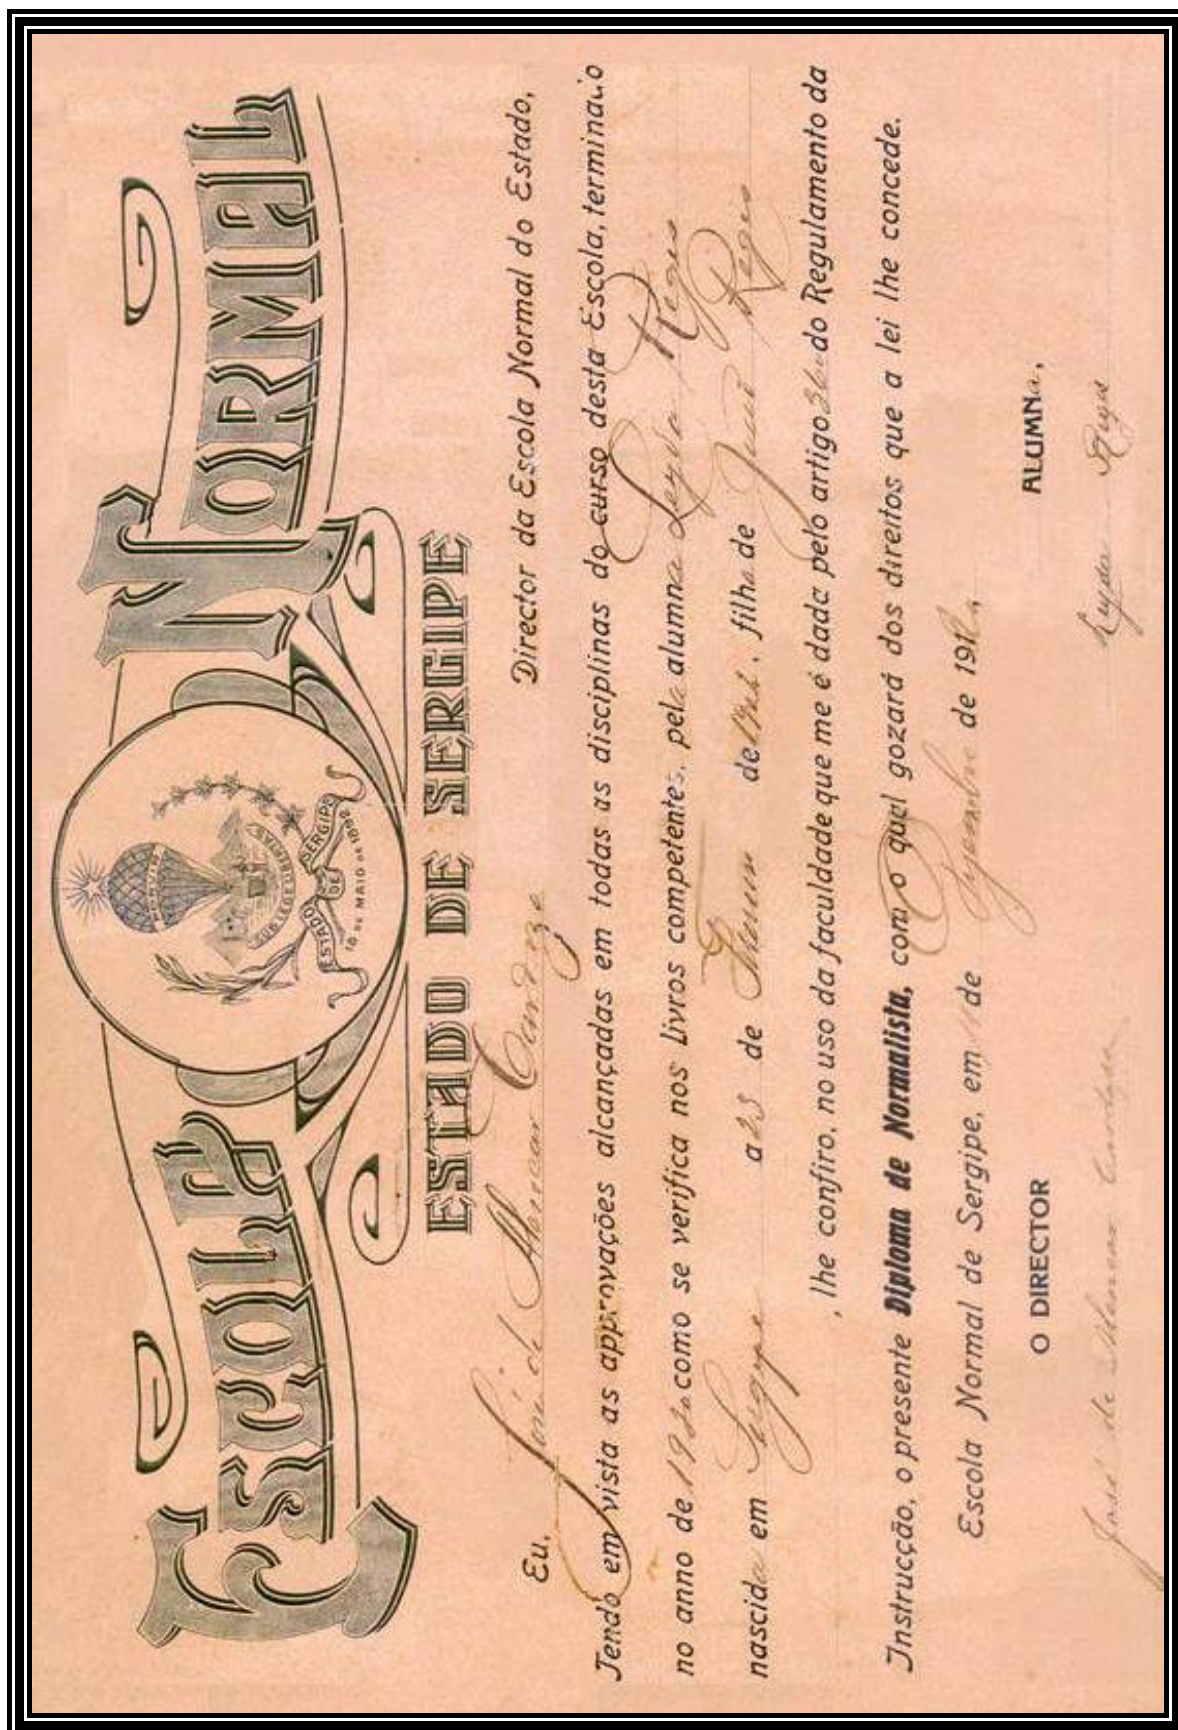 ESCOLA NORMAL
SUB LEGE LIBERTAS
ESTADO DE SERGIPE
18 DE MAIO DE 1892
ESTADO DE SERGIPE
Eu, José de Alencar Cardozo Director da Escola Normal do Estado,
Tendo em vista as approvações alcançadas em todas as disciplinas do curso desta Escola, terminado
no anno de 1920 como se verifica nos Livros competentes, pela alumna Leyda Regis
nascida em Sergipe a 23 de de filha de José Regis
, lhe confiro, no uso da faculdade que me é dada pelo artigo do Regulamento da
Instrucção, o presente Diploma de Normalista, com o qual gozará dos direitos que a lei lhe concede.
Escola Normal de Sergipe, em 11 de Dezembro de
O DIRECTOR ALUMNa,
José de Alencar Cardozo Leyda Regis